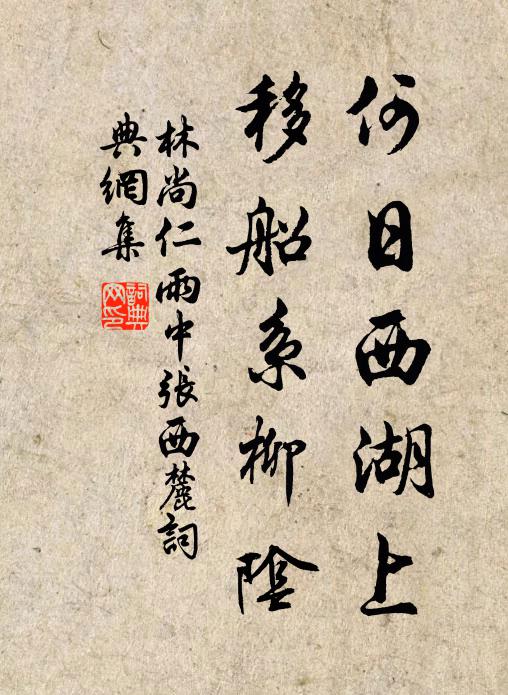 何日西湖上
移船系柳陰
林尚仁雨中張西麓詞
典網集
詞典網印